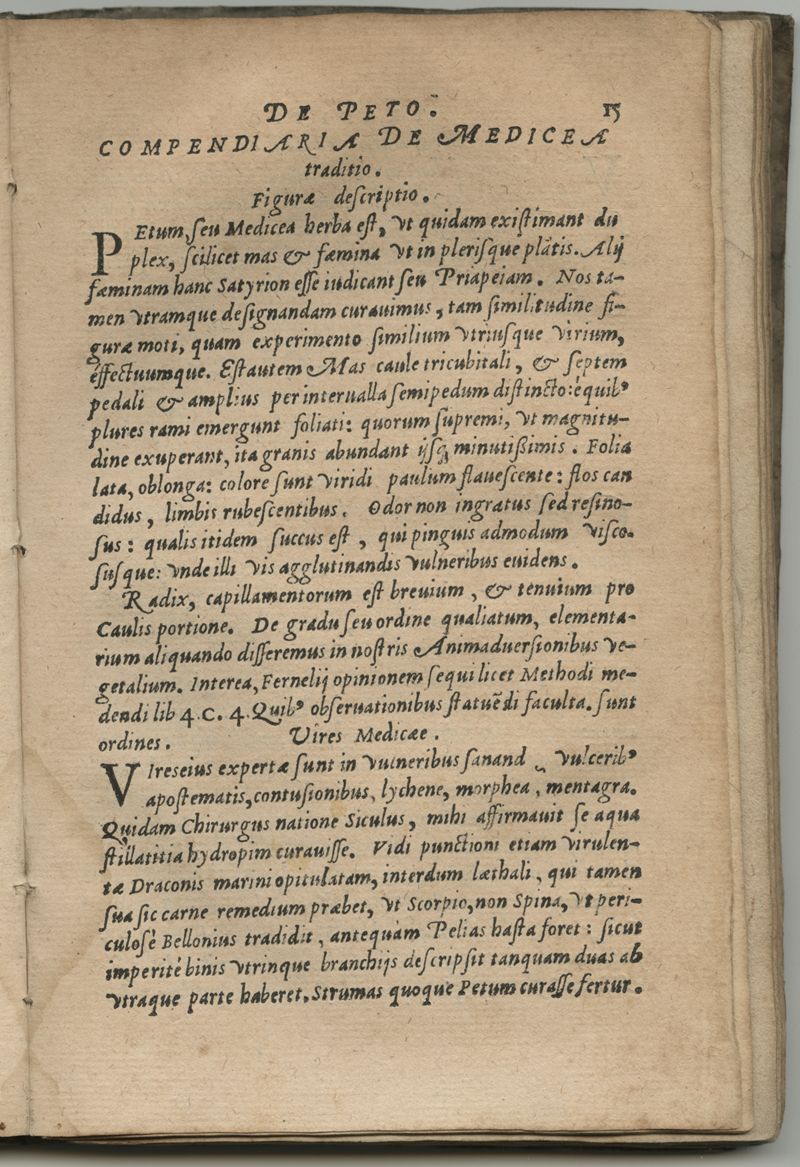 DE PETO. 15
COMPENDIARIA DE MEDICEA
traditio.
Figuræ descriptio.
PEtum, seu Medicea herba est, vt quidam existimant du
plex, scilicet mas & fæmina vt in plerisque plātis. Alij
fæminam hanc Satyrion esse iudicant seu Priapeiam. Nos ta-
men vtramque designandam curauimus, tam similitudine fi-
guræ moti, quam experimento similium vtriusque virium,
effectuumque. Est autem Mas caule tricubitali, & septem
pedali & amplius per interualla semipedum distincto: è quibꝰ
plures rami emergunt foliati: quorum supremi, vt magnitu-
dine exuperant, ita granis abundant ijsq; minutißimis. Folia
lata, oblonga: colore sunt viridi paulum flauescente: flos can
didus, limbis rubescentibus. Odor non ingratus sed resino-
sus: qualis itidem succus est, qui pinguis admodum visco-
susque: vnde illi vis agglutinandis vulneribus euidens.
Radix, capillamentorum est breuium, & tenuium pro
Caulis portione. De gradu seu ordine qualiatum, elementa-
rium aliquando disseremus in nostris Animaduersionibus ve-
getalium. Interea, Fernelij opinionem sequi licet Methodi me-
dendi lib 4. C. 4. Quibꝰ obseruationibus statuēdi faculta. sunt
ordines. Vires Medicæ.
VIres eius expertæ sunt in vulneribus sanand vlceribꝰ
apostematis, contusionibus, lychene, morphea, mentagra.
Quidam Chirurgus natione Siculus, mihi affirmauit se aqua
stillatitia hydropim curauisse. Vidi punctioni etiam virulen-
tæ Draconis marini opitulatam, interdum læthali, qui tamen
sua sic carne remedium præbet, vt Scorpio, non Spina, vt peri-
culosè Bellonius tradidit, antequàm Pelias hasta foret: sicut
imperitè binis vtrinque branchijs descripsit tanquam duas ab
vtraque parte haberet. Strumas quoque Petum curasse fertur.